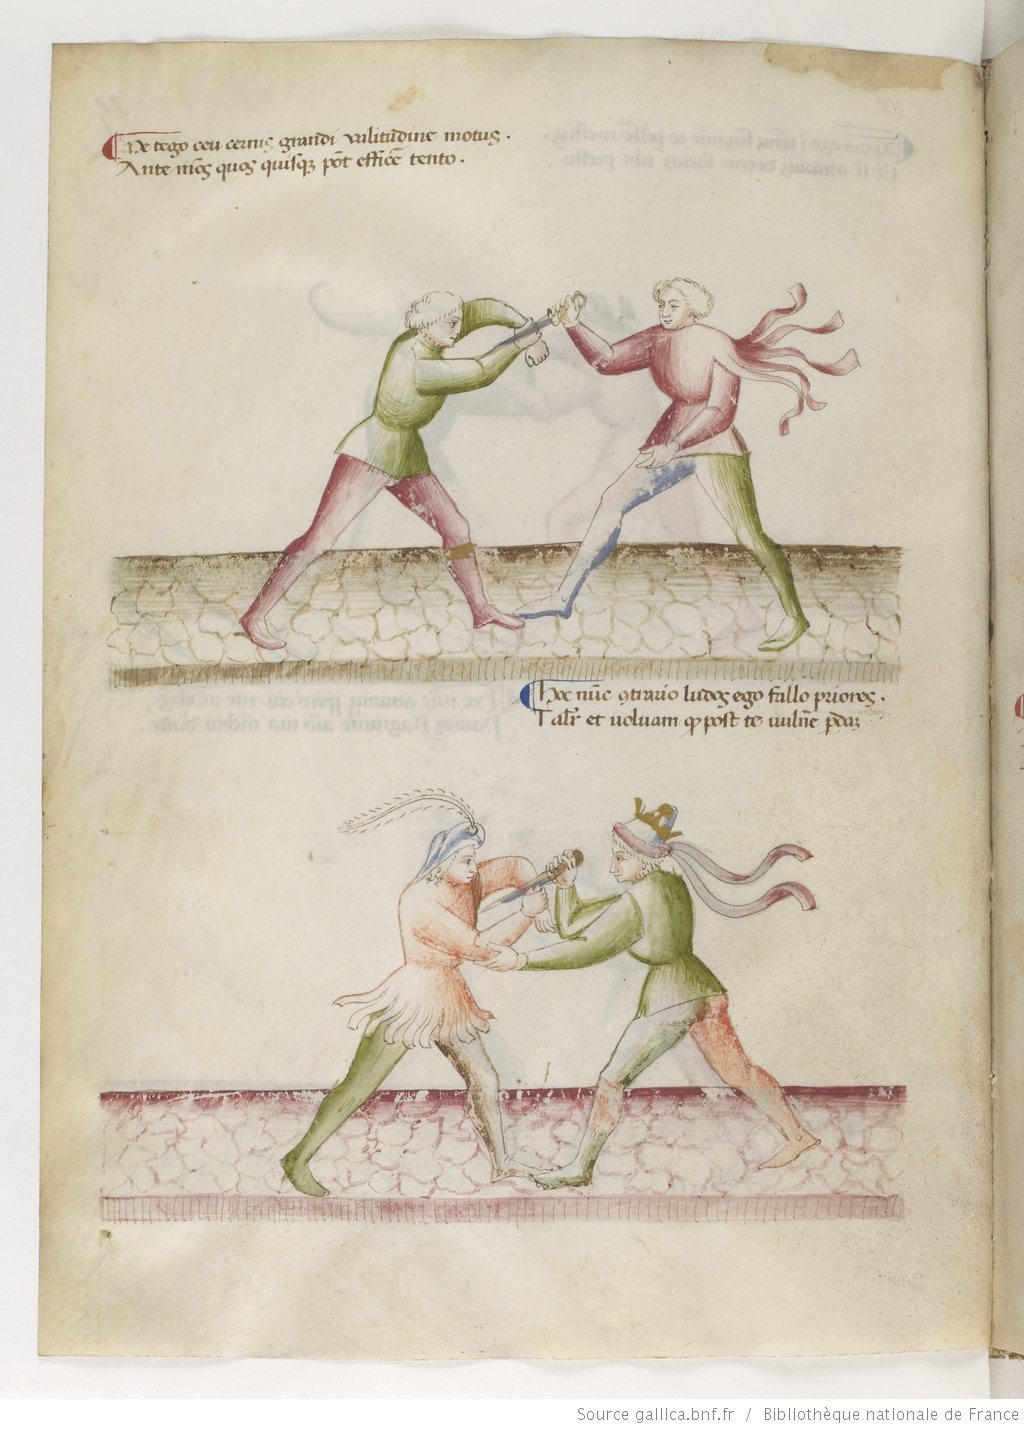 Me tego ceu cernis grandi valitudine motus.
Ante meos quos quisque pot efficere tento.
Hoc nunc contrario ludos ego fallo priores.
Talr et voluam quod post te vulnere
Source gallica.bnf.fr / Bibliothèque nationale de France